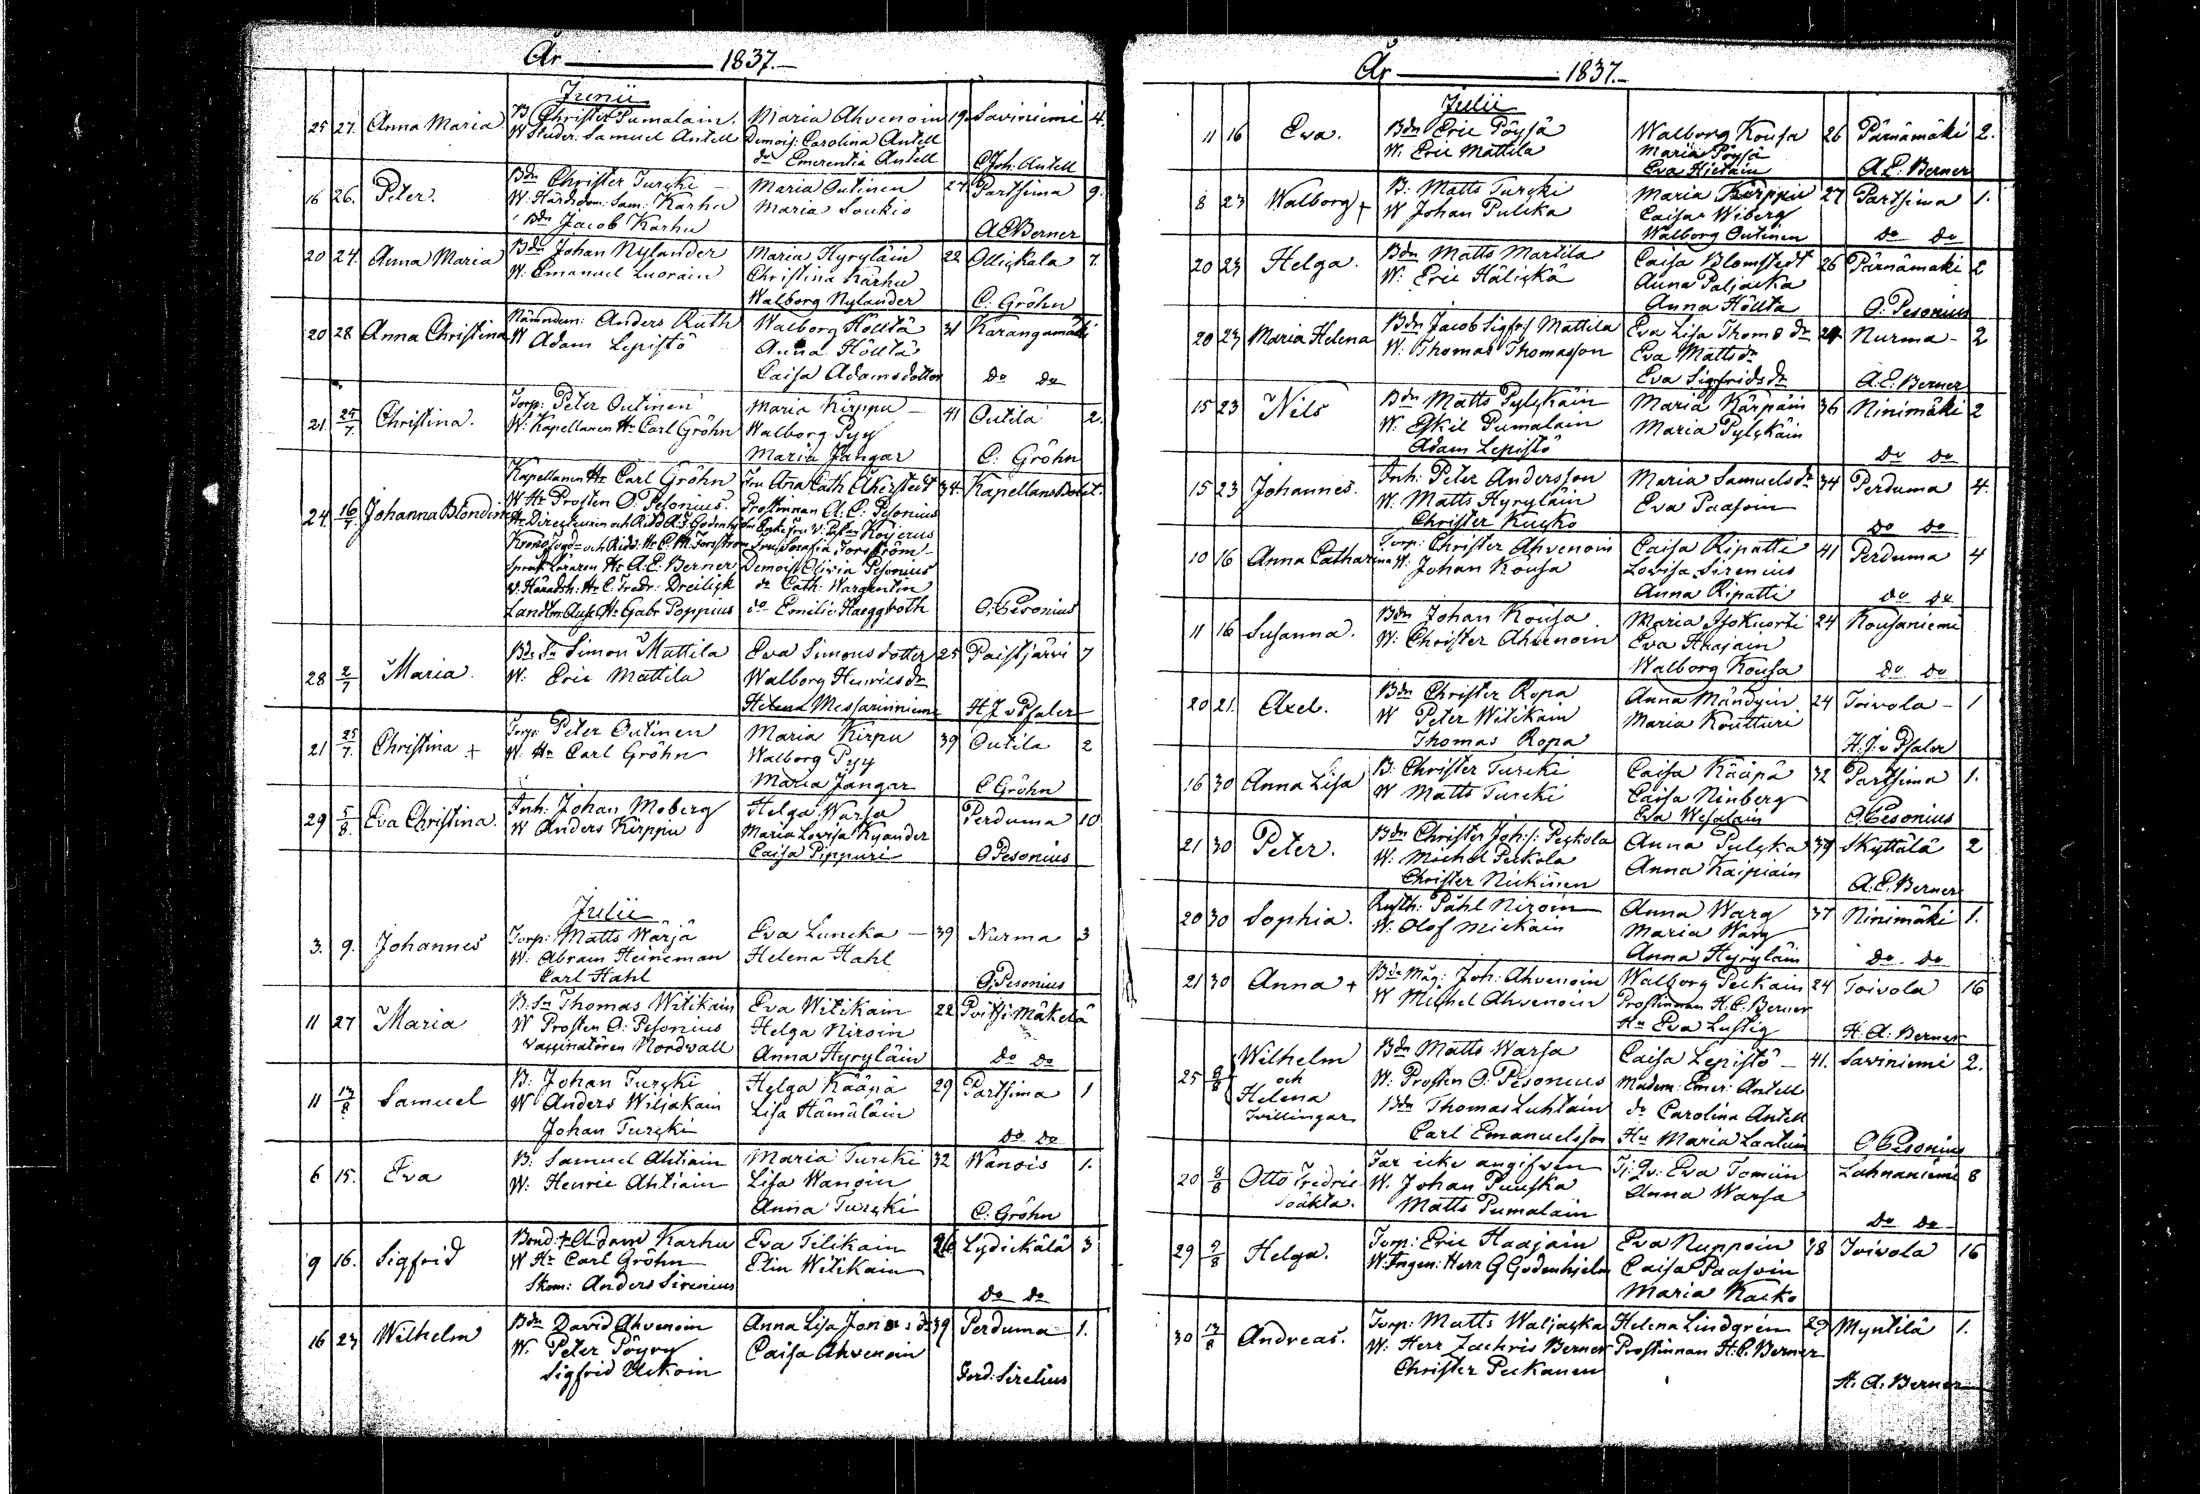 År 1837.
Junii
25 27. Anna Maria. B. Christer Pumalain. Maria Ahvenoin 19. Saviniemi 4.
W Studer. Samuel Antell Demois: Carolina Antell
do Emerentia Antell Joh. Antell
16 26. Peter. Bdn Christer Turcki Maria Outinen 27 Partsima 9.
W. Härdsdom. Sam: Karhu Maria Soukio
Bdn Jacob Karhu A E Berner
20 24. Anna Maria Bdn Johan Nylander Maria Hyryläin 22 Ollickala 7.
W. Emanuel Luorain Christina Karhu
Walborg Nylander C: Gröhn
20 28 Anna Christina Nämndem: Anders Ruth Walborg Höltä 31 Karangamäki
W Adam Lepistö Anna Höltä
Caisa Adamsdotter do do
21 25/7. Christina. Torp: Peter Outinen Maria Kirppu 41 Outila 2.
W. Kapellanen Hr Carl Gröhn Walborg Pyy
Maria Jangar C: Gröhn
24 16/7 Johanna Blondine Kapellanen Hr Carl Gröhn Fru Ana Cath Åkerstedt 34. Kapellans Bolet.
W Hr Prosten O: Pesonius. Prostinnan A: C: Pesonius
Hr Directeuren och Ridd A: F Godenhjelm Enke Fru Köyerus
Krono Fogd och Ridd. Hr C. M. Forsström Fru Sorafia Forsström
Språk Läraren Hr A. E: Berner Demois Olivia Pesonius
v. Häradsh: Hr C. Fredr: Dreilick do Cath: Wargentin
Landtm Ausc Hr Gabr Poppius do Emilie Haeggroth O. Pesonius
28 2/7 Maria. Bde Sn Simon Mattila Eva Simonsdotter 25 Paistjärvi 7
W. Eric Mattila Walborg Henricsdr
Helena Messarinniemi H J v Psaler
21 25/7. Christina + Torp. Peter Outinen Maria Kirpu 39 Outila 2
W. Hr Carl Gröhn Walborg Pyy
Maria Jangar C Gröhn
29 5/8. Eva Christina. Inh. Johan Moberg Helga Warsa Perduma 10
W Anders Kirppu Maria Lovisa Kyander
Caisa Pippuri O Pesonius
Julii
3. 9. Johannes Torp: Matts Warjä Eva Luncka 39 Nurma 3
W. Abram Heineman Helena Hahl
Carl Hahl O. Pesonius
11 27 Maria B. Sn Thomas Witikain Eva Witikain 22 Poitsi Mäkelä
W Prosten O: Pesonius Helga Niroin
Vaccinatören Nordwall Anna Hyryläin do do
11 13/8 Samuel B: Johan Turcki Helga Kääpä 29 Partsima 1
W Anders Wiljakain Lisa Hämäläin
Johan Turcki do do
6 15. Eva B. Samuel Ahtiain Maria Turcki 32 Wanois 1.
W: Henric Ahtiain Lisa Wanoin
Anna Turcki C: Gröhn
9 16. Sigfrid Bond: Adam Karhu Eva Tilikain 26 Lydickälä 3
W Hr Carl Gröhn Elin Witikain
Skom: Anders Sirenius do do
16 23 Wilhelm Bdn David Ahvenoin Anna Lisa Jonasdr 39 Perduma 1.
W. Peter Pöyry Caisa Ahvenoin
Sigfrid Uckoin Ferd: Sirelius
År 1837.
Julii
11 16 Eva. Bdn Eric Pöysä Walborg Kousa 26 Pärnämäki 2.
W. Eric Mattila Maria Pöysä
Eva Hietain A. E: Berner
8 23 Walborg + B: Matts Turcki Maria Kärppir 27 Partsima 1.
W Johan Pulcka Caisa Wiberg
Walborg Outinen do do
20 23 Helga. Bdn Matts Martila Caisa Blomstedt 26 Pärnämäki 2
W: Eric Hälickä Anna Paljacka
Anna Höltta O. Pesonius
20 23 Maria Helena Bdn Jacob Sigfrs Mattila Eva Lisa Thoms dr 24. Nurma 2
W. Thomas Thomasson Eva Mattsdr
Eva Sigfridsdr A. E: Berner
15 23 Nils Bdn Matts Pylckäin Maria Kärpäin 36 Ninimäki 2
W. Eskil Pumalain Maria Pylckäin
Adam Lepistö do do
15 23 Johannes. Inh: Peter Andersson Maria Samuelsdr 34 Perduma 4.
W. Matts Hyryläin Eva Paasoin
Christer Kucko do do
10 16 Anna Catharina Torp: Christer Ahvenoin Caisa Ripatti 41 Perduma 4
W. Johan Kousa Lovisa Sirenius
Anna Ripatti do do
11 16 Susanna. Bdn Johan Kousa Maria Isokuorti 24 Kousaniemi
W. Christer Ahvenoin Eva Haajain
Walborg Kousa do do
20 21. Axel. Bdn Christer Ropa Anna Mändyin 24 Toivola 1
W Peter Witikain Maria Koutturi
Thomas Ropa H. J. v Psaler
16 30 Anna Lisa B. Christer Turcki Caisa Kääpä 32 Partsima 1.
W Matts Turcki Caisa Ninberg
Eva Wesalain O. Pesonius
21 30 Peter. Bdn Christer Joh:s: Peckola Anna Pulcka 39 Skyttälä 2
W. Michel Peckola Anna Kaipiain
Christer Nickinen A. E. Berner
20 30 Sophia. Rusth: Påhl Niroin Anna Warg 37 Ninimäki 1.
W. Olof Mickain Maria Warg
Anna Hyryläin do do
21 30 Anna + Bde Måg: Joh: Ahvenoin Walborg Peckain 24 Toivola 16
W Michel Ahvenoin Prostinnan H. C. Berner
Hu Eva Lustig H. A: Berner
25 8/8 Wilhelm Bdn Matts Warsa Caisa Lepistö 41. Saviniemi 2.
och W. Prosten O: Pesonius Madem: Emer: Antell
Helena Bdn Thomas Luhtain do Carolina Antell
Tvillingar Carl Emanuelsson Hu Maria Laatuin O. Pesonius
20 8/8 Otto Fredric Far icke angifven Tj: Qv: Eva Tomiin Lahnaniemi 8
Oäkta. W. Johan Puuska Anna Warsa
Matts Pumalain do do
29 9/8 Helga. Torp: Eric Haajain Eva Nuppoin 28 Toivola 16
W. Ingen: Herr G Godenhjelm Caisa Paasoin
Maria Kacko
30 13/8 Andreas. Torp: Matts Waljacka Helena Lindgren 29 Myntilä 1.
W. Herr Zachris Berner Prostinnan H. C. Berner
Christer Peckanen H. A: Berner